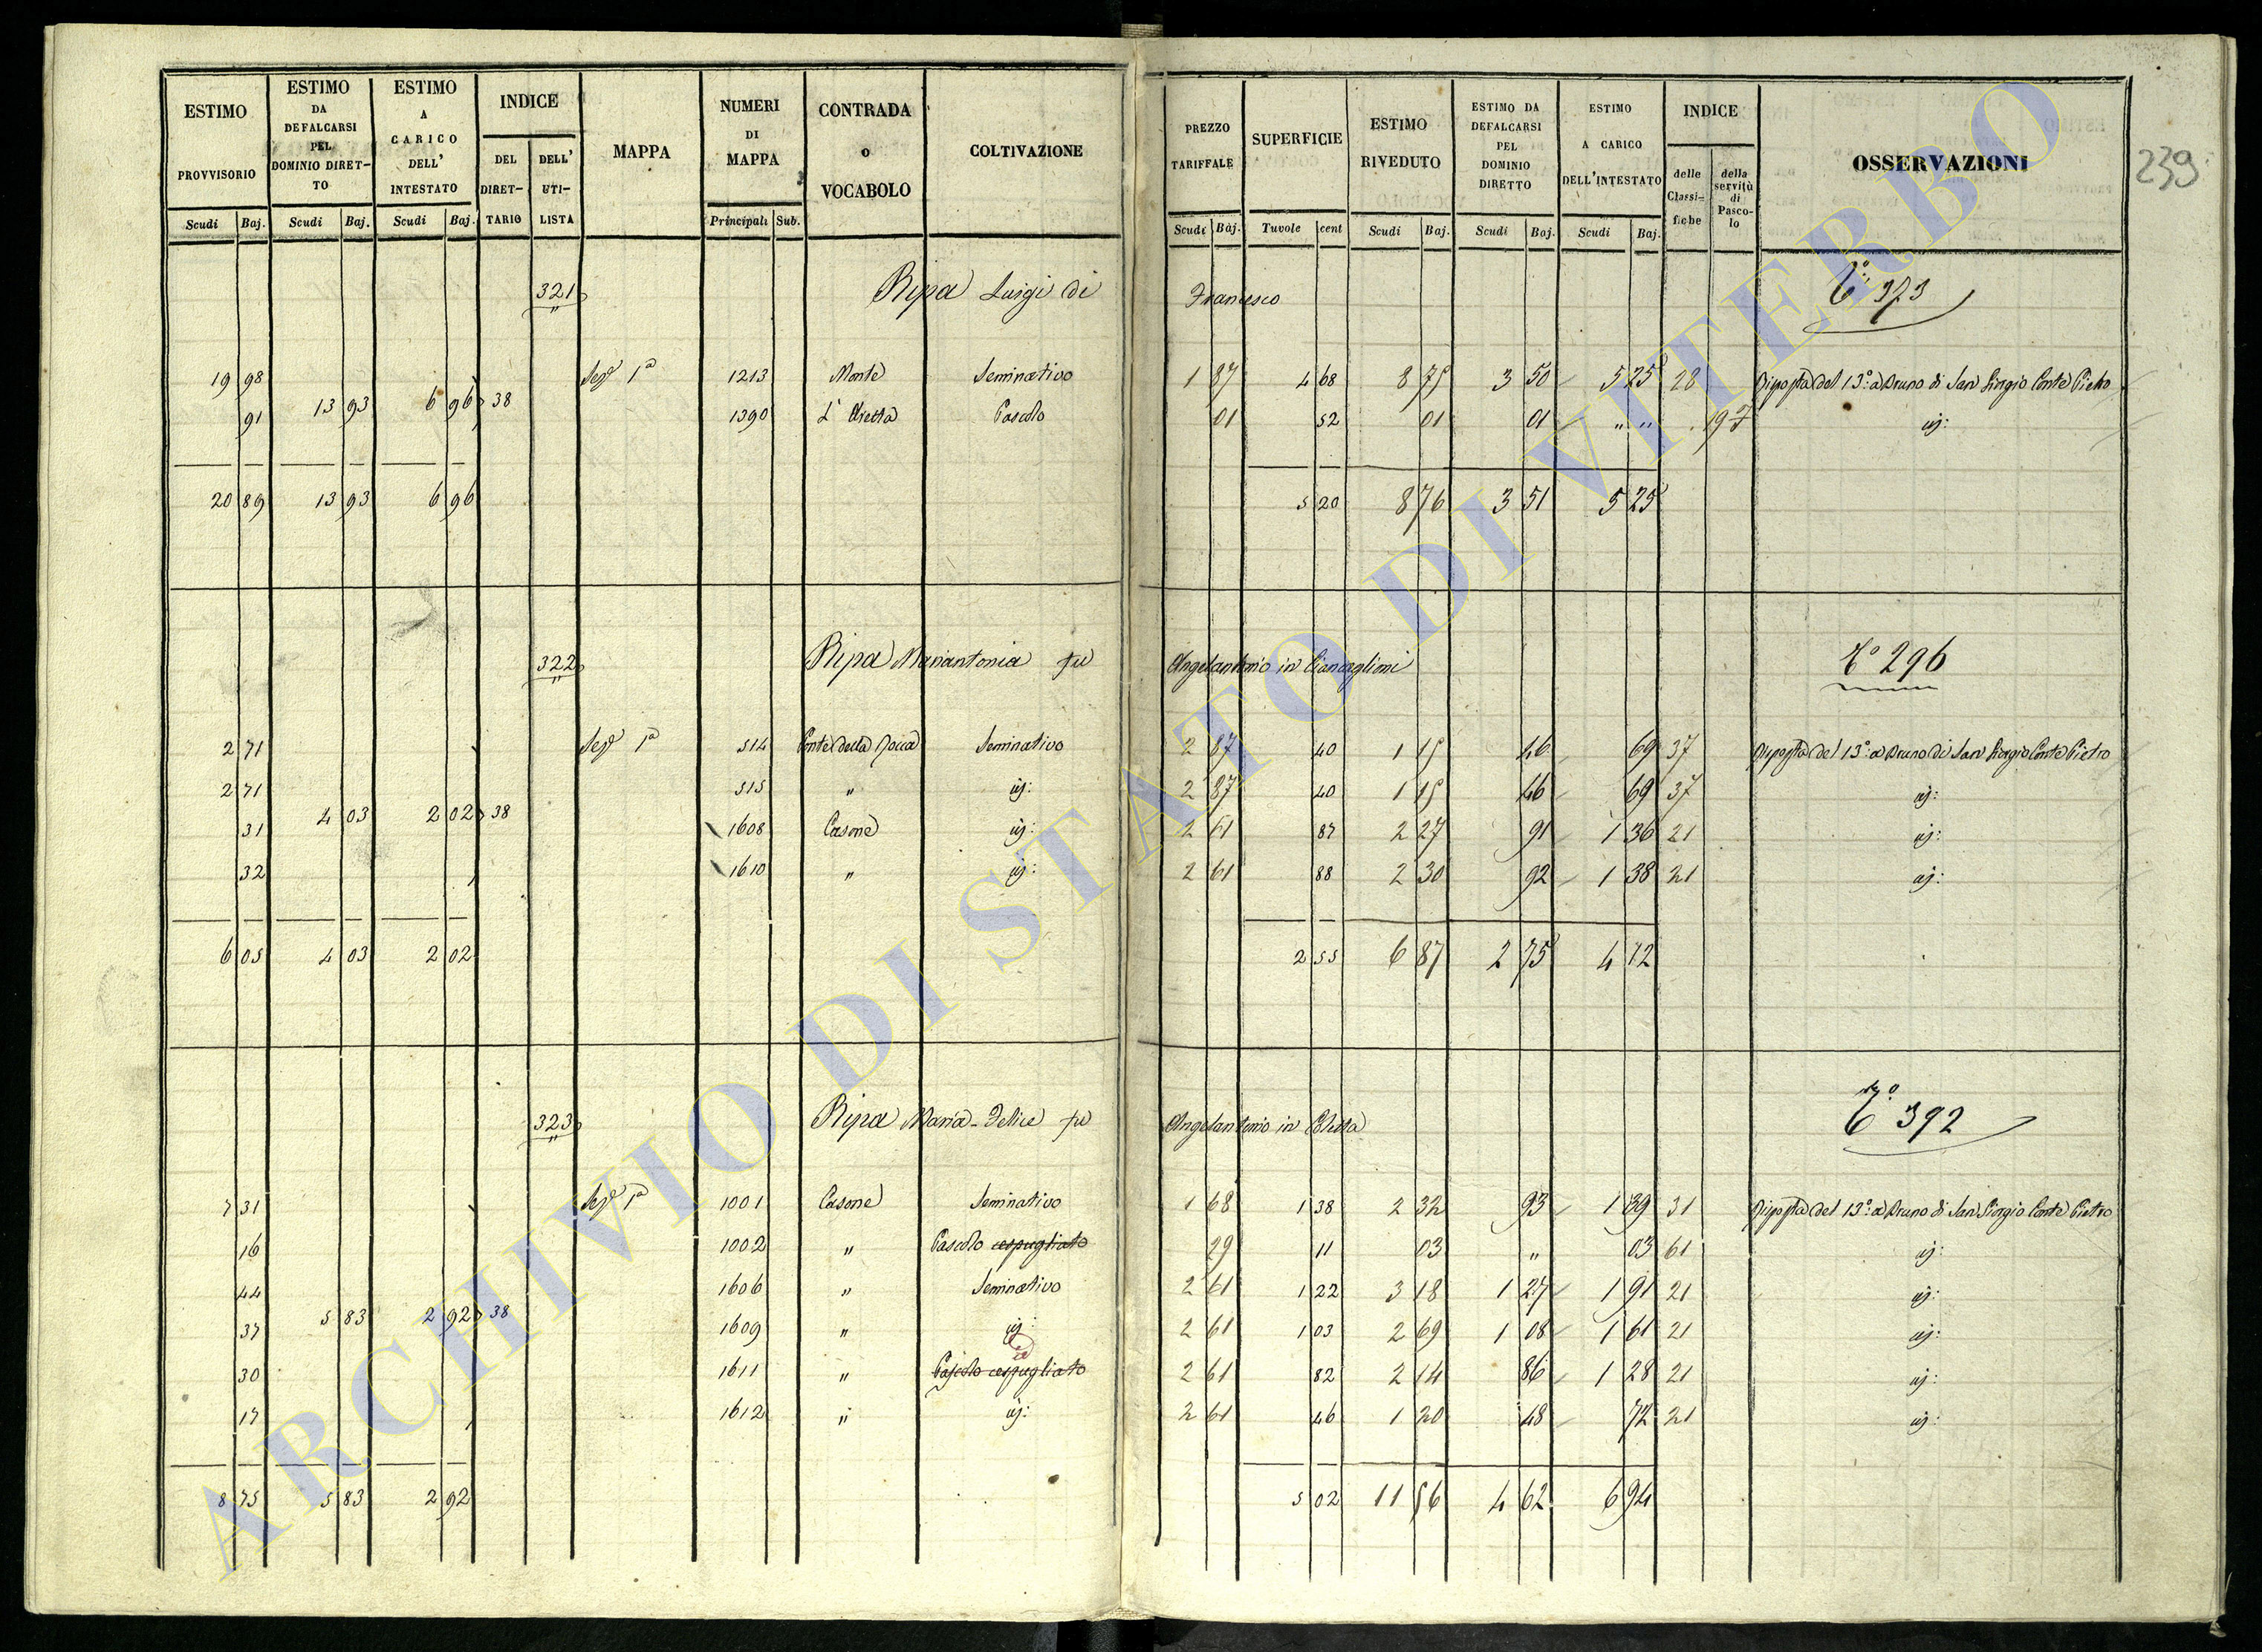 ESTIMO PROVVISORIO Scudi Baj.
ESTIMO DA DEFALCARSI PEL DOMINIO DIRET-TO Scudi Baj.
ESTIMO A CARICO DELL' INTESTATO Scudi Baj.
INDICE DEL DIRET-TARIO DELL' UTI-LISTA
MAPPA
NUMERI DI MAPPA Principali Sub.
CONTRADA o VOCABOLO
COLTIVAZIONE
PREZZO TARIFFALE Scudi Baj.
SUPERFICIE Tavole cent
ESTIMO RIVEDUTO Scudi Baj.
ESTIMO DA DEFALCARSI PEL DOMINIO DIRETTO Scudi Baj.
ESTIMO A CARICO DELL'INTESTATO Scudi Baj.
INDICE delle Classi-fiche della servitù di Pasco-lo
OSSERVAZIONI
239
321 Ripa Luigi di Francesco 373
19 98 1ª 1213 Monte Seminativo 1 87 4 68 8 75 3 50 5 25 28 Risposta del 13º a Bruno di San Giorgio Conte Pietro
13 93 6 96 38
91 1390 Pascolo 01 52 01 01 " " 197 iij:
20 89 13 93 6 96 5 20 8 76 3 51 5 25
322 Ripa Mariantonia fu Angelantonio in 296
2 71 1ª 514 Fonte della Rocca Seminativo 2 87 40 1 15 46 69 37 Risposta del 13º a Bruno di San Giorgio Conte Pietro
2 71 515 " iij: 2 87 40 1 15 46 69 37 iij:
4 03 2 02 38
31 1608 Casone iij: 2 61 87 2 27 91 1 36 21 iij:
32 1610 " iij: 2 61 88 2 30 92 1 38 21 iij:
6 05 4 03 2 02 2 55 6 87 2 75 4 12
323 Ripa Maria Felice fu Angelantonio in 392
7 31 1ª 1001 Casone Seminativo 1 68 1 38 2 32 93 1 39 31 Risposta del 13º a Bruno di San Giorgio Conte Pietro
16 1002 " Pascolo cespugliato 29 11 03 " 03 61 iij:
44 1606 " Seminativo 2 61 1 22 3 18 1 27 1 91 21 iij:
5 83 2 92 38
37 1609 " iij: 2 61 1 03 2 69 1 08 1 61 21 iij:
30 1611 " Pascolo cespugliato 2 61 82 2 14 86 1 28 21 iij:
17 1612 " iij: 2 61 46 1 20 48 72 21 iij:
8 75 5 83 2 92 5 02 11 56 4 62 6 94
ARCHIVIO DI STATO DI VITERBO